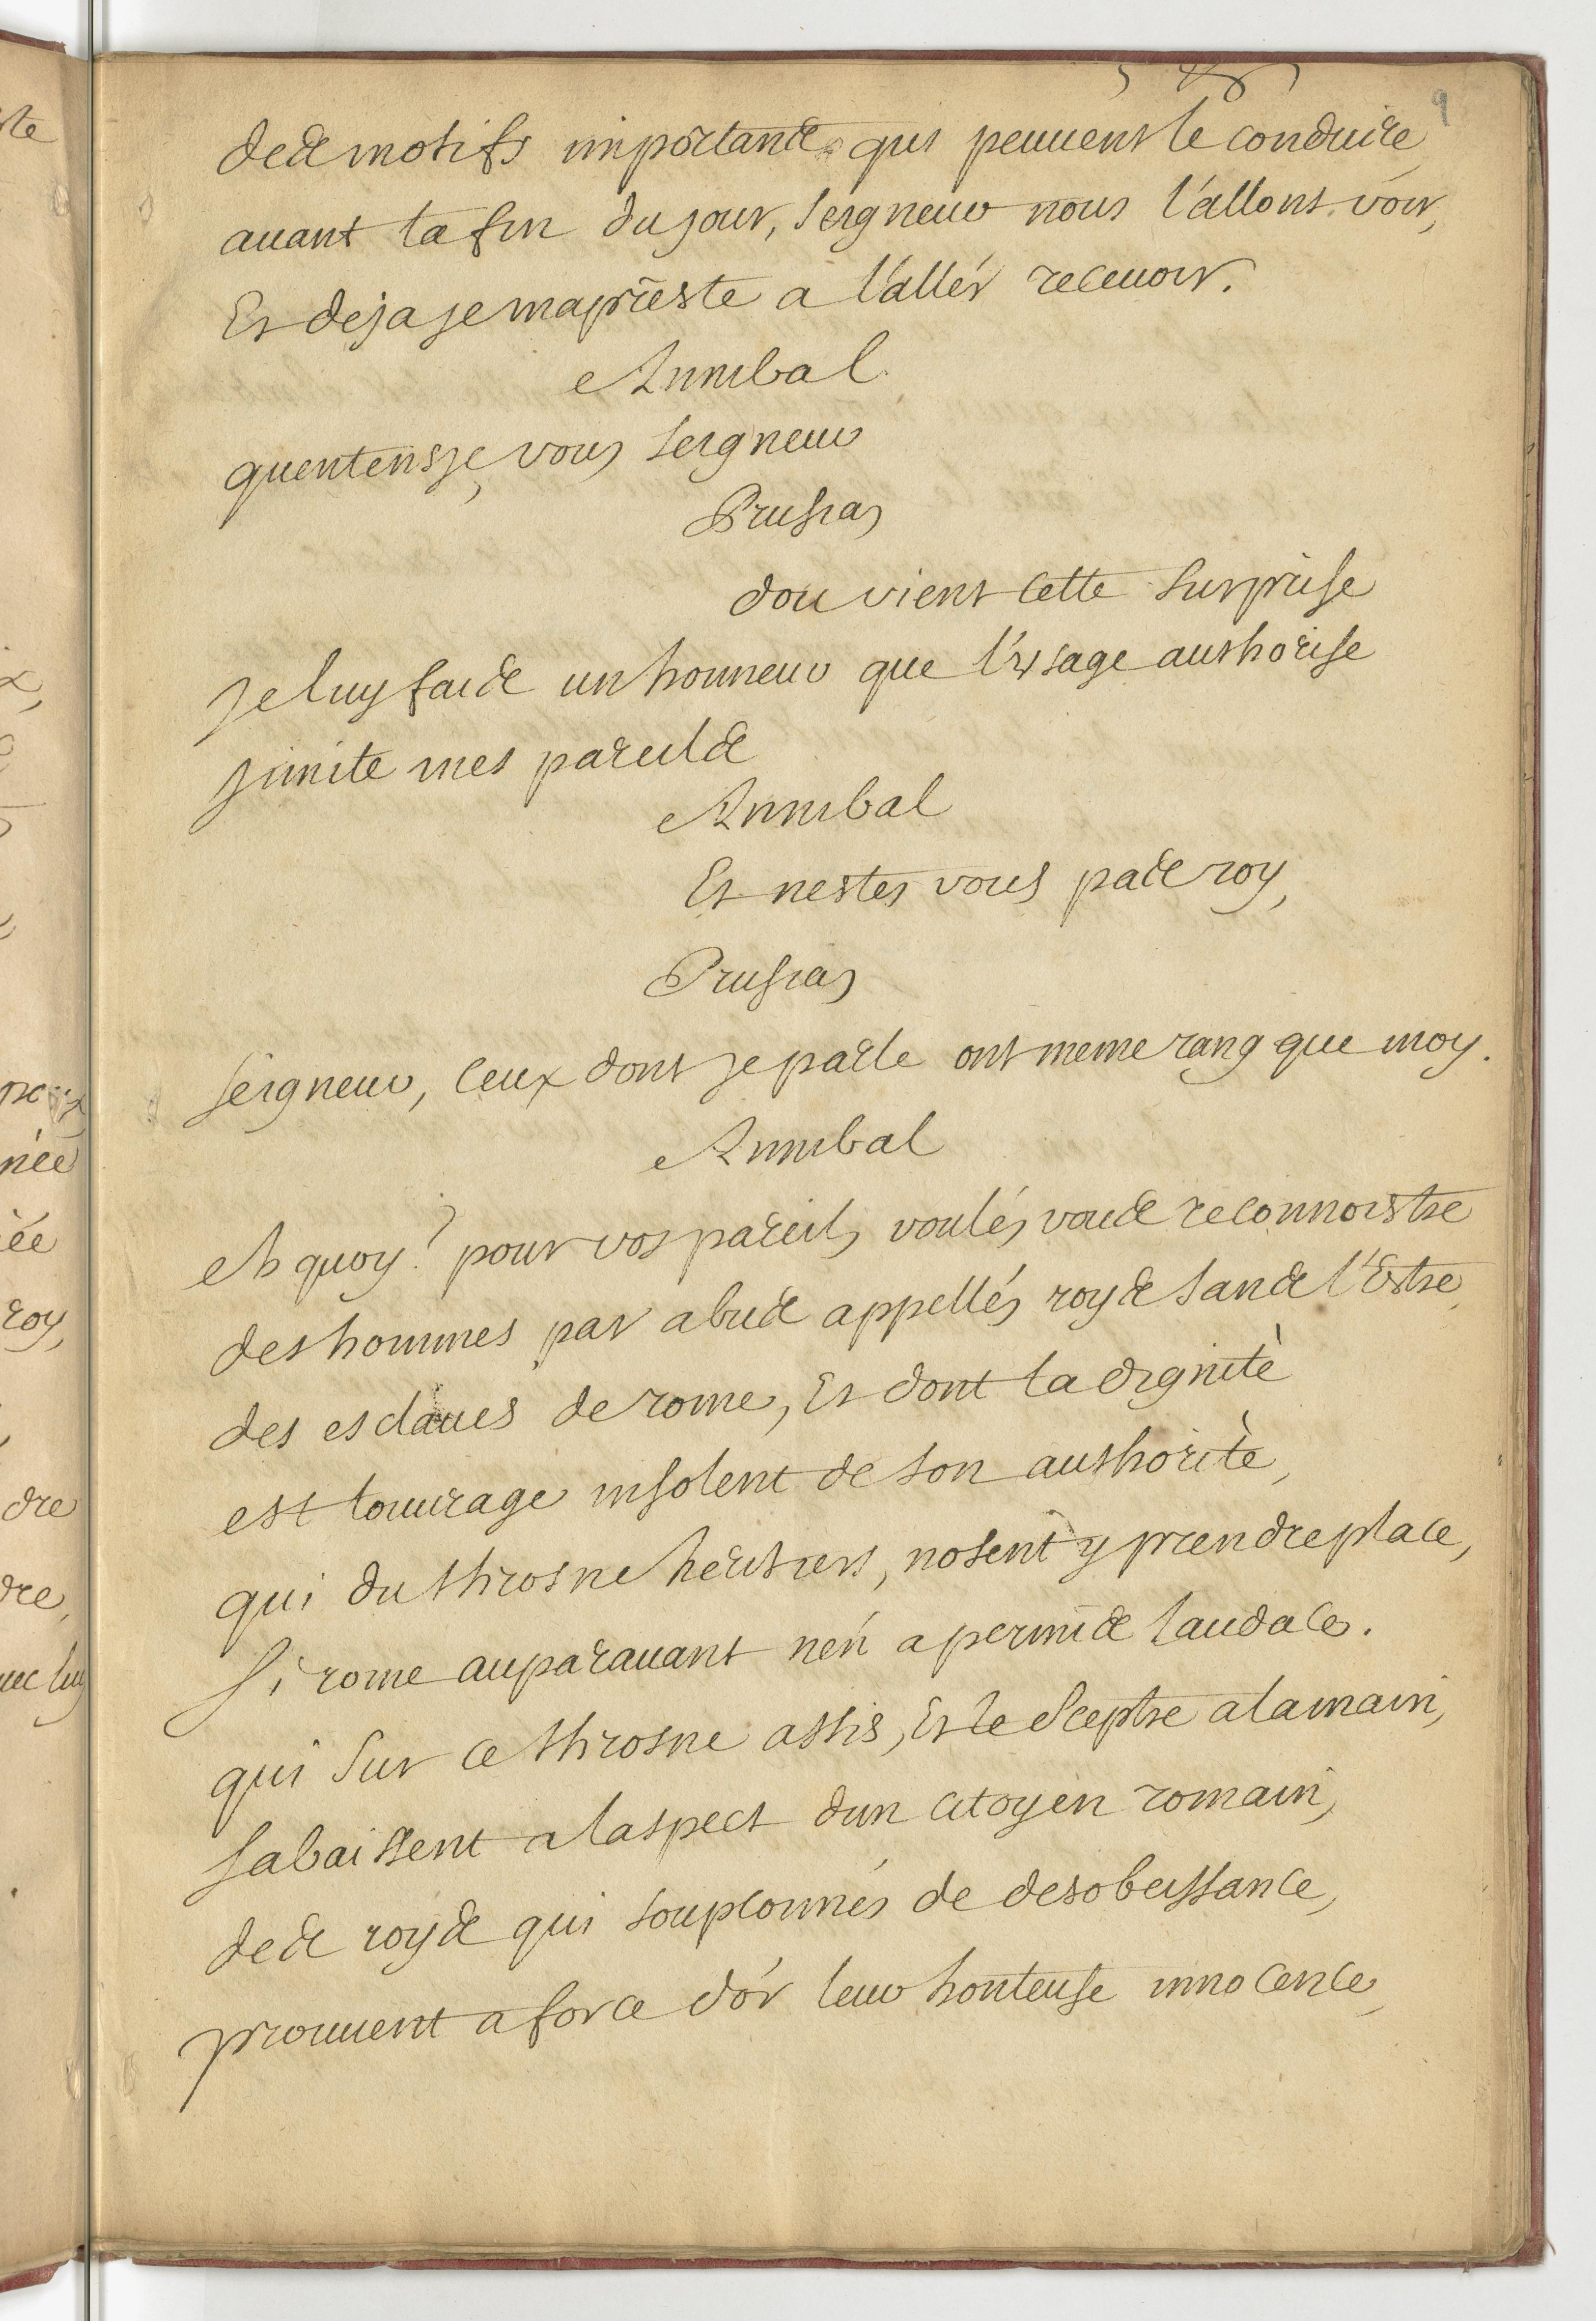 9
des motifs importants qui peuuent le conduire
auant la fin du jour, seigneur nous l'allons voir,
Et deja je mapreste a l'aller receuoir.
Annibal
quentens je, vous seigneur
Prusias
dou vient cette surprise
Je luy fais un honneur que l'vsage authorise
jimite mes pareils
Annibal
Et nestes vous pas roy,
Prusias
seigneur, ceux dont je parle ont meme rang que moy.
Annibal
eh quoy? pour vos pareils voulés vous reconnoistre
des hommes par abus appellés roys sans l'Estre
des esclaues de rome, Et dont la dignitè
est louurage insolent de son authoritè,
qui du throsne heritiers, nosent y prendre place,
Si rome auparauant nén a permis laudace.
qui sur ce throsne assis, Et le sceptre a la main,
sabaissent a laspect dun citoyen romain,
des roys qui soupconnés de desobeissance,
prouuent a force dór leur honteuse innocence,